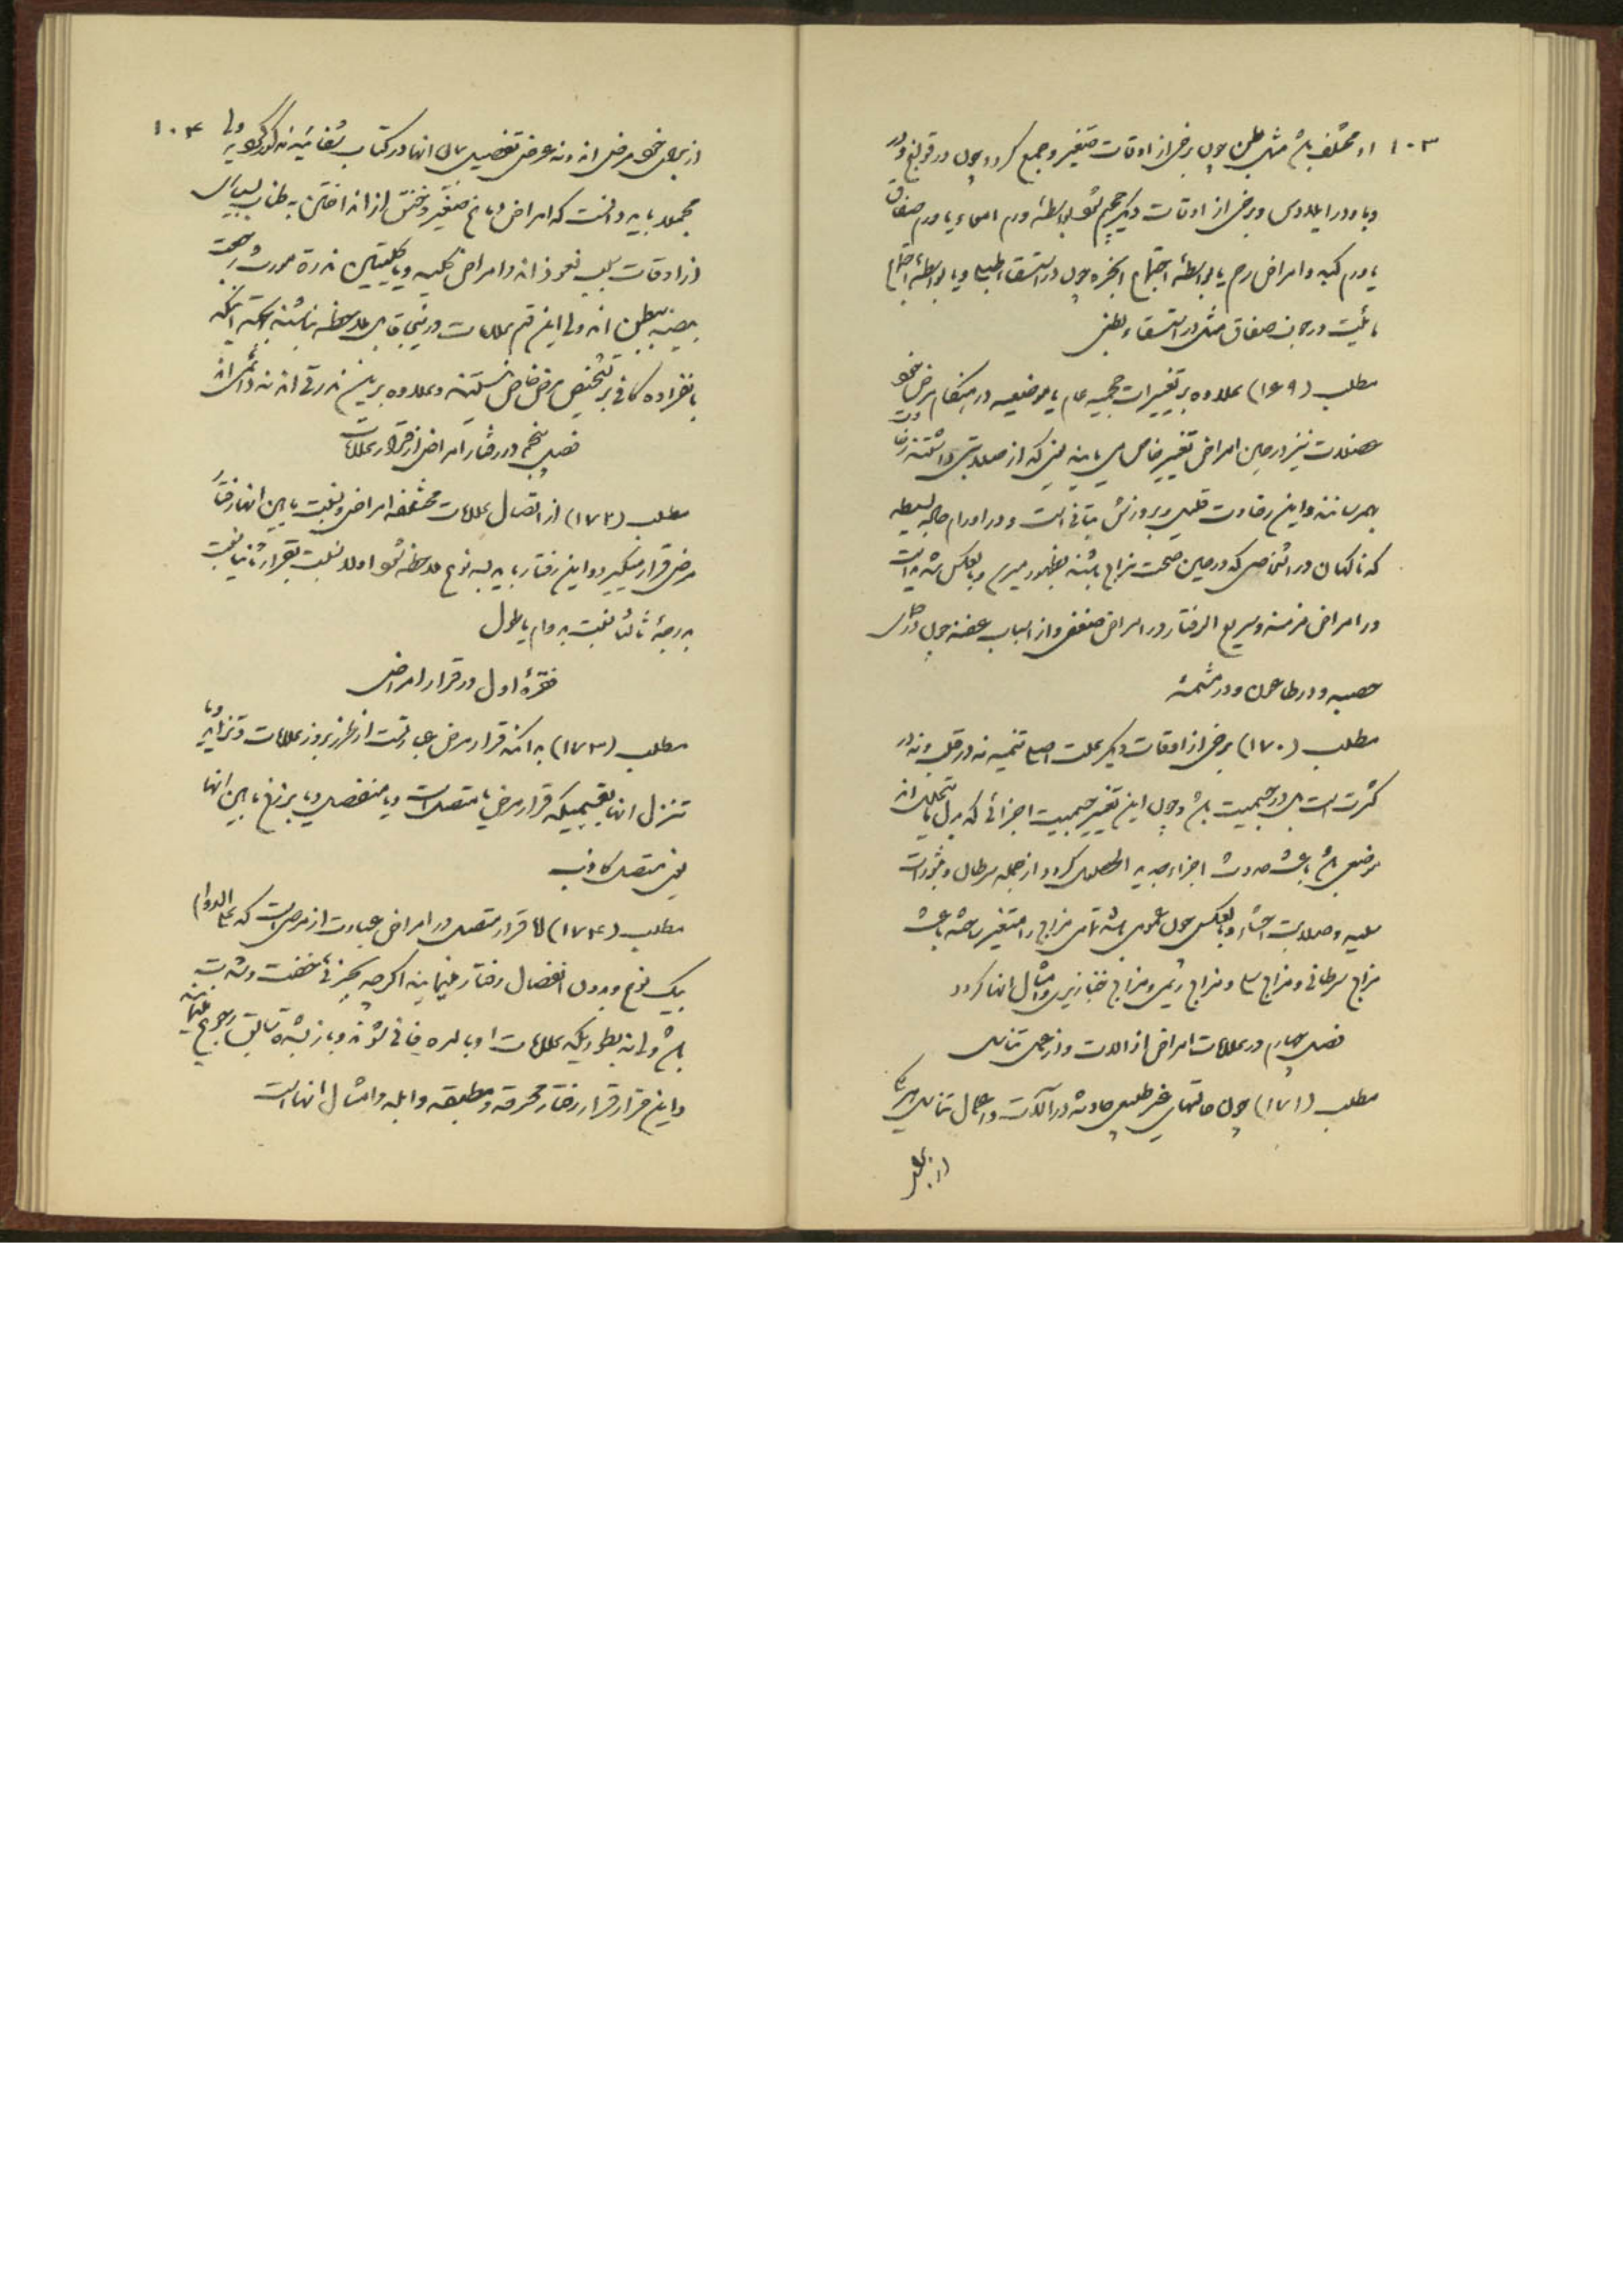 ۱۰۳
او مختلف باشد مثل بطن چون برخی از اوقات صغیر و جمع گردد چون در قولنج و در
و یا در ایلاوس و برخی از اوقات دیگر حجیم شود بواسطهٔ ورم امعاء یا ورم صفاق
یا ورم کبد و امراض رحم یا بواسطهٔ اجتماع ابخره چون در استسقاء طبلی و یا بواسطهٔ اجتماع
مائیت در صفاق مثل در استسقاء بطنی
مطلب (۱۶۹) علاوه بر تغییرات حجمیه عام یا موضعیه در هنگام مرض خود
عضلات نیز در حین امراض تغییر خاص می یابند یعنی که از صلابتی داشتند رخاوت
بهم رسانند و این رخاوت قلیل و بروزش بتأنی است و در اورام حاده بسیطه
که ناگهان در اشخاصی که در حین صحت مزاج باشند بظهور میرسد و بالعکس شدید است
در امراض مزمنه و سریع الرفتار در امراض متعفن و از اسباب عفنه چون در
حصبه و در طاعون و در مشمشه
مطلب (۱۷۰) برخی از اوقات دیگر علت اصلی تنمیه نه در قلت و نه در
کثرت است بل در جسمیت باشد و چون این تغییر جسمیت اجزائی که بدل ما یتحلل اند
موضعی باشد باعث حدوث اجزاء جدید الحصول گردد از جمله سرطان و بثورات
سلیه و صلابت احشاء و بالعکس چون عمومی باشد تمامی مزاج را متغیر ساخته باعث
مزاج سرطانی و مزاج سلی و مزاج ریمی و مزاج خنازیری و امثال آنها گردد
فصل چهارم در علامات امراض از آلات و از عمل تناسل
مطلب (۱۷۱) چون حالتهای غیر طبیعی حادثه در آلات و اعمال تناسل هر یک
از بعلی
۱۰۴
از خود مرض اند و نه عرض تفصیل حال آنها در کتاب شفائیه مذکور گردید ولی
مجملا باید دانست که امراض دماغ صغیر و خنق از انداختن به طناب بسیاری
از اوقات سبب نعوذ اند و امراض کلیه و یا کلیتین ندرة مورث وجع
بیضه بطن اند ولی این قسم علامات در نتیجه قابل ملاحظه نباشند بجهت اینکه
بانفراده کافی بر تشخیص مرض خاص نیستند و علاوه بر این ندرتی اند نه دائمی اند
فصل پنجم در رفتار امراض از قرار علامات
مطلب (۱۷۲) از اتصال علامات مختلفه امراض و نسبت مابین آنها رفتار
مرض قرار میگیرد و این رفتار باید به سه نوع ملاحظه شود اولا نسبت بقرار ثانیا نسبت
بدرجهٔ ثالثا نسبت بدوام یا طول
فقرهٔ اول در قرار امراض
مطلب (۱۷۳) بدانکه قرار مرض عبارتست از طرز بروز علامات و تزاید و یا
تنزل آنها بقسمیکه قرار مرض یا متصل است و یا منفصل و یا برزخ مابین آنها
یعنی متصل کاذب
مطلب (۱۷۴) اما قرار متصل در امراض عبارت از مرضی است که علی الدوام
بیک نوع و بدون انفصال رفتار مینماید اگر چه بجزئی خفت و شدت
باشد ولی نه بطوریکه علامات او بالمره فانی شوند و باز بشدة سابق رجوع نمایند
و این قرار قرار رفتار محرقه و مطبقه و آبله و امثال آنها است